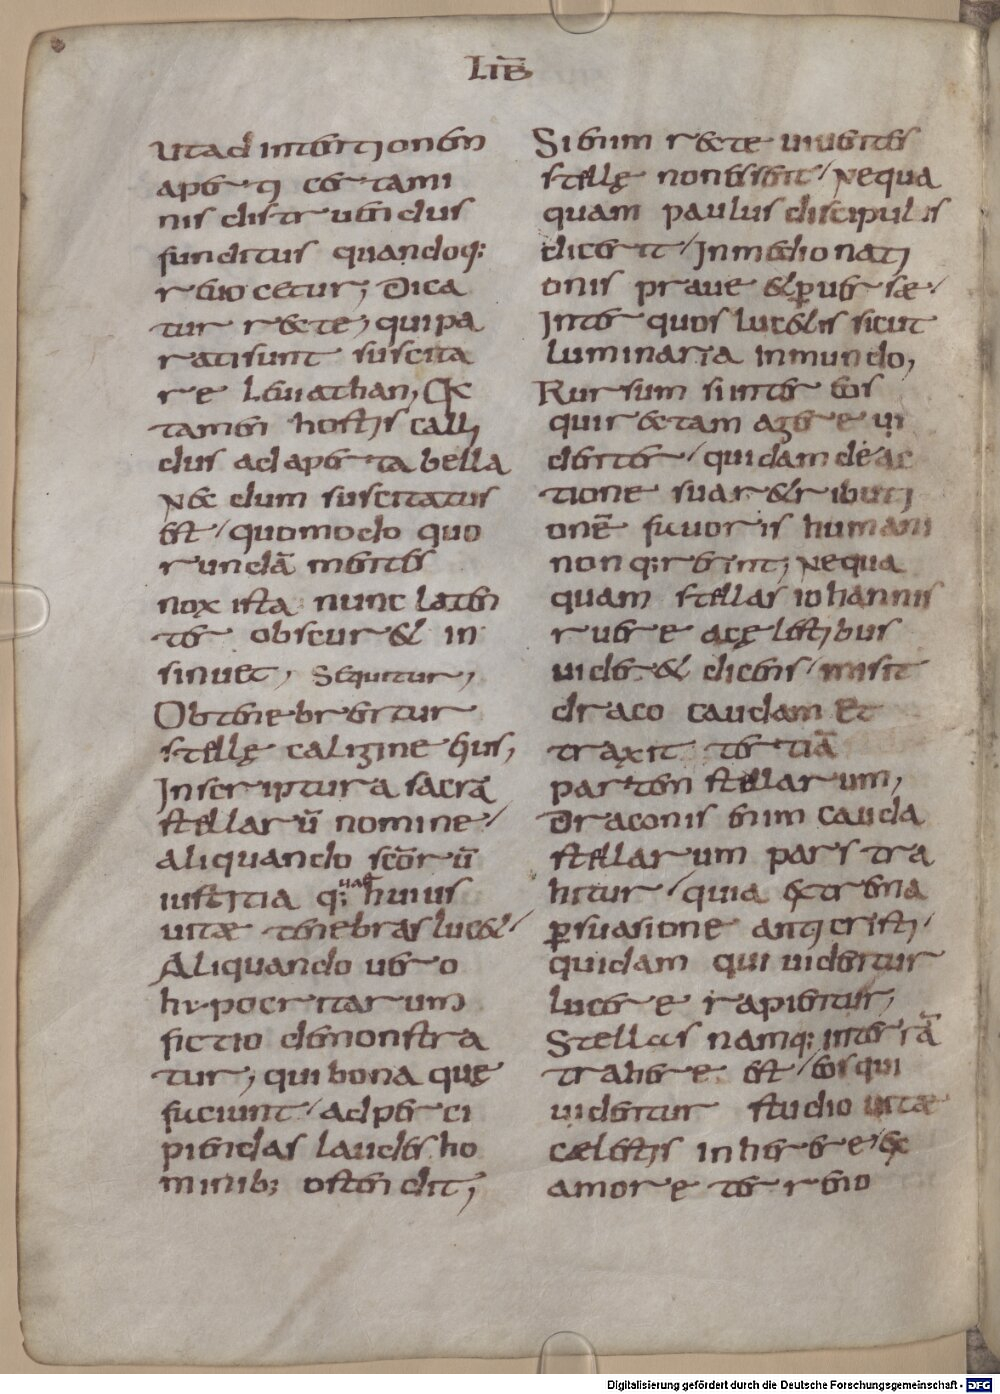 LIB̄
Vtad intentionem
aperti certami
nis distruendus
funditus quandoq;
reuocetur; Dica
tur recte, quipa
ratisunt suscita
re leuiathan, At
tamen hostis calli
dus adaperta bella
Nec dum suscitatus
est / quomodo quo
rundā mentes
nox ista nunc laten
ter obscur& in
sinuet, Sequitur,
Obtenebrentur
stellę caligine eius,
Inscriptura sacra
stellarū nomine /
aliquando sc̄orū
iustitia q; uae huius
uitæ tenebras luc& /
Aliquando uero
hypocritarum
fictio demonstra
tur, quibona quę
faciunt / adperci
piendas laudes ho
minib; ostendit,
Sienim recte uiuentes
stellę nonessent / Nequa
quam paulus discipulis
diceret / Inmedio nati
onis praue &puersæ /
Inter quos luc&is sicut
luminaria inmundo,
Rursum siinter eos
quir&tam agere ui
dentur / quidam deac
tione suar&ributi
onē fauoris humani
nonq;rerent, Nequa
quam stellas iohannis
ruere acęlestibus
uider& dicens / misit
draco caudam et
traxit tertiā
partem stellarum,
Draconis enim cauda
stellarum pars tra
hitur / quia extrema
psuasione anticristi /
quidam qui uidentur
lucere rapientur,
Stellas namq; interrā
trahere est / eos qui
uidentur studio uitæ
cælestis inherere / ex
amore terreno
Digitalisierung gefördert durch die Deutsche Forschungsgemeinschaft - DFG